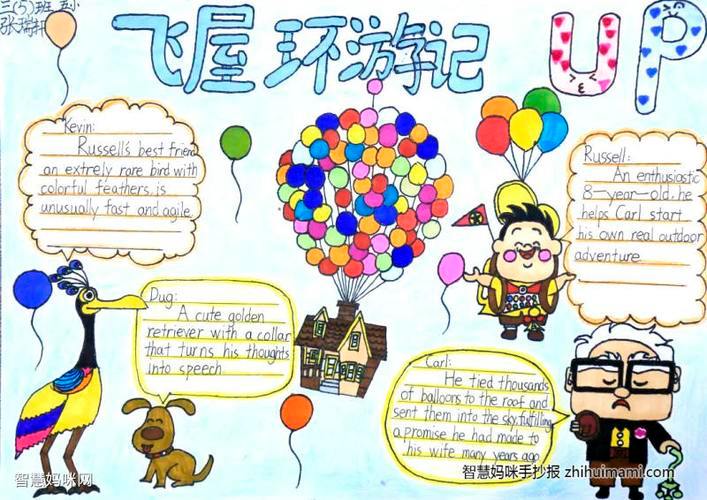 三(5)班
张瑞轩
飞屋环游记
UP
Kevin:
Russell's best friend
an extrely rare bird with
colorful feathers, is
unusually fast and agile.
Russell:
An enthusiastic
8-year-old, he
helps Carl start
his own real outdoor
adventure.
Dug:
A cute golden
retriever with a collar
that turns his thoughts
into speech.
Carl:
He tied thousands
of balloons to the roof and
sent them into the sky, fulfilling
a promise he had made to
his wife many years ago
智慧妈咪网
智慧妈咪手抄报 zhihuimami.com